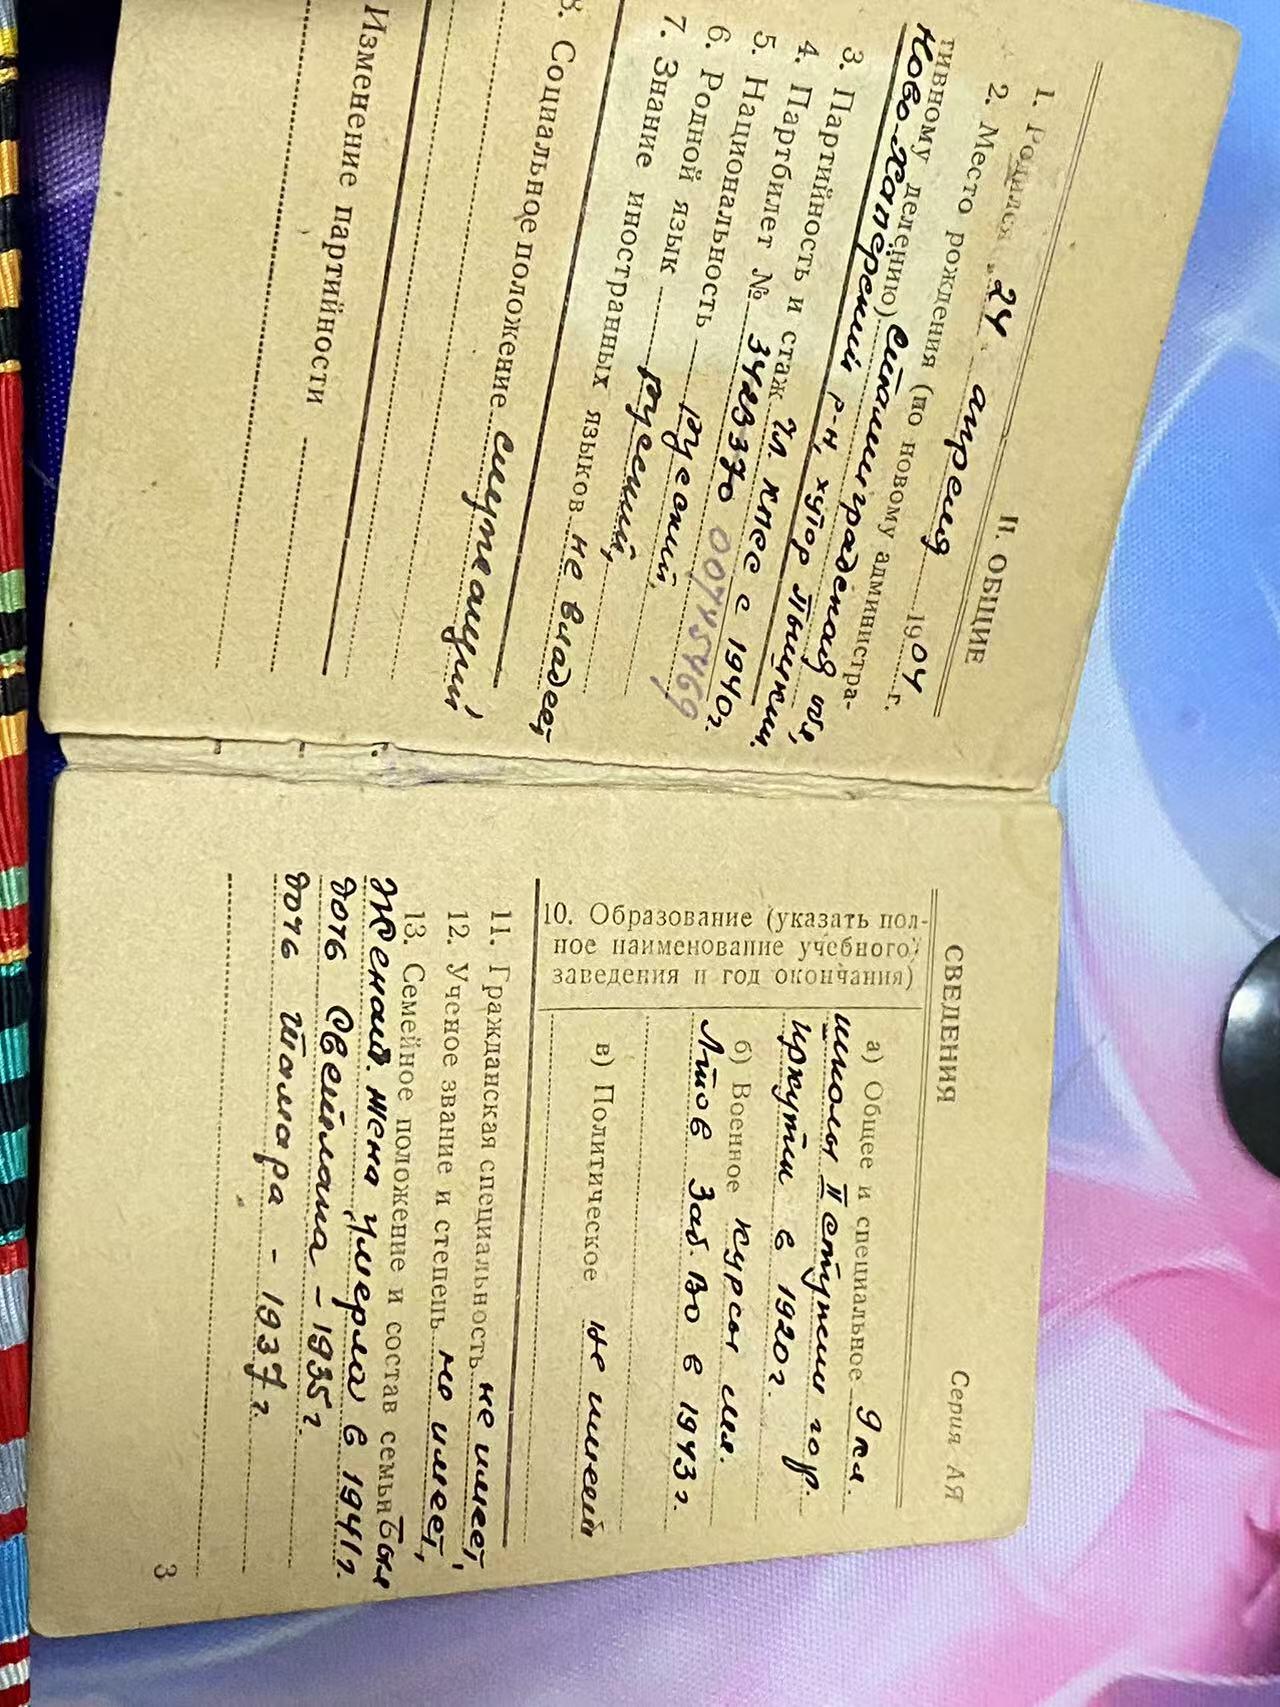 II. ОБЩИЕ
1. Родился „24“ апреля 1904 г.
2. Место рождения (по новому административному делению) Сталинградская обл,
Ново-Хаперский р-н, хутор Пыцкий.
3. Партийность и стаж Чл. КПСС с 1940 г.
4. Партбилет № 3428370 00745469
5. Национальность русский,
6. Родной язык русский,
7. Знание иностранных языков не владеет,
8. Социальное положение служащий
Изменение партийности
СВЕДЕНИЯ
Серия АЯ
10. Образование (указать пол-
ное наименование учебного
заведения и год окончания)
а) Общее и специальное 9 кл.
школы II ступени гор.
Иркутск в 1920 г.
б) Военное курсы мл.
л-тов Заб. ВО в 1943 г.
в) Политическое не имеет
11. Гражданская специальность не имеет,
12. Ученое звание и степень не имеет,
13. Семейное положение и состав семьи Был
женат. жена умерла в 1941 г.
дочь Светлана – 1935 г.
дочь Тамара – 1937 г.
3